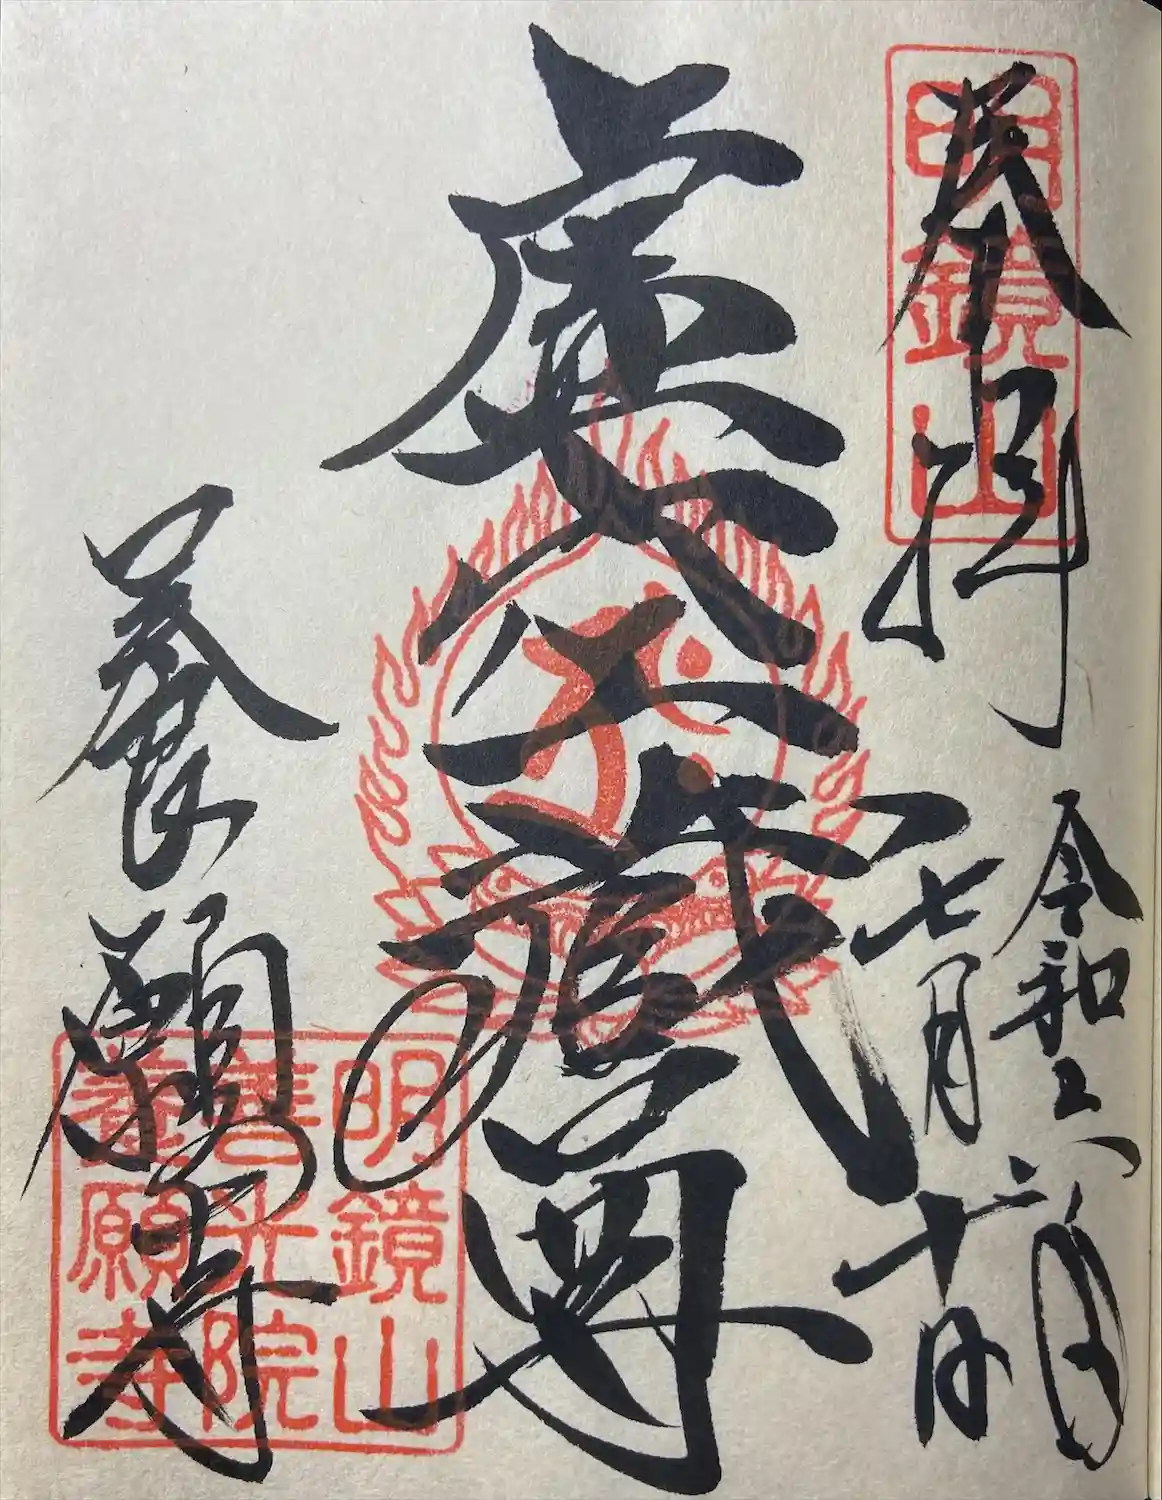 奉拝
明鏡山
令和六年
七月十日
虚空蔵尊
養願寺
明鏡山
善光院
養願寺